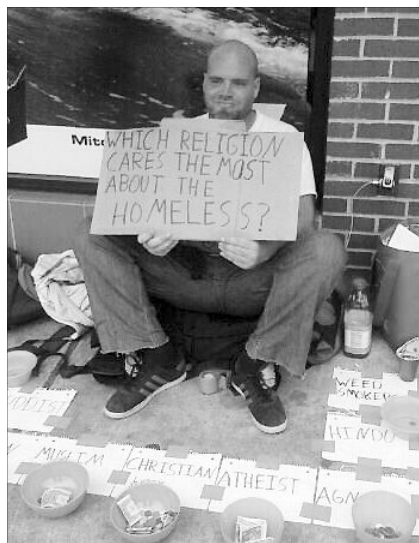 WHICH RELIGION
CARES THE MOST
ABOUT THE
HOMELESS?
WEED
SMOKER
HINDU
MUSLIM
CHRISTIAN
ATHEIST